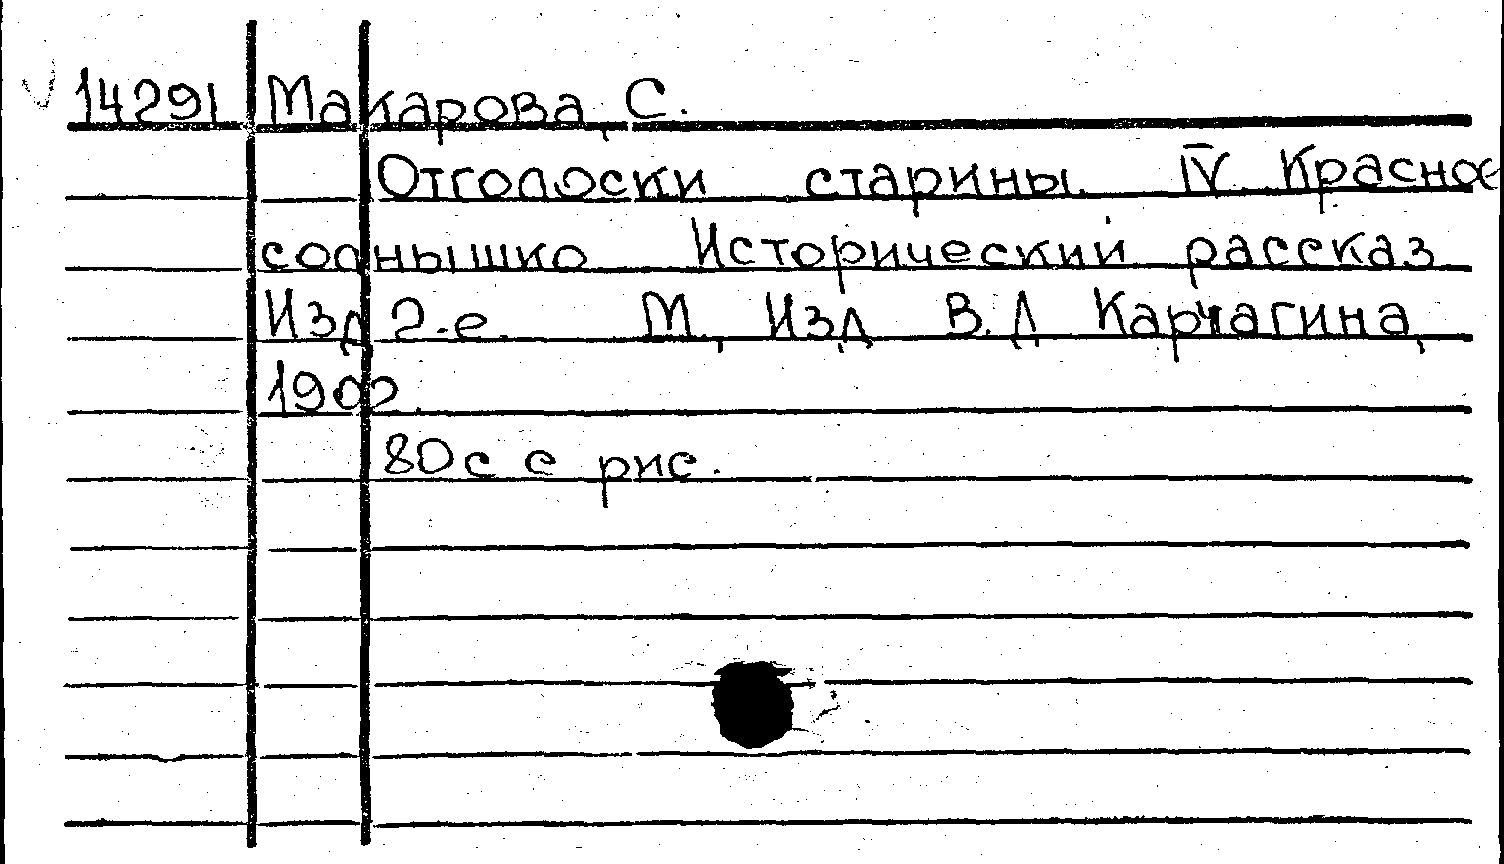 14291 Макарова, С.
Отголоски старины. IV. Красное
солнышко Исторический рассказ
Изд 2-е. М., Изд. В. Д Карчагина,
1902.
80с с рис.